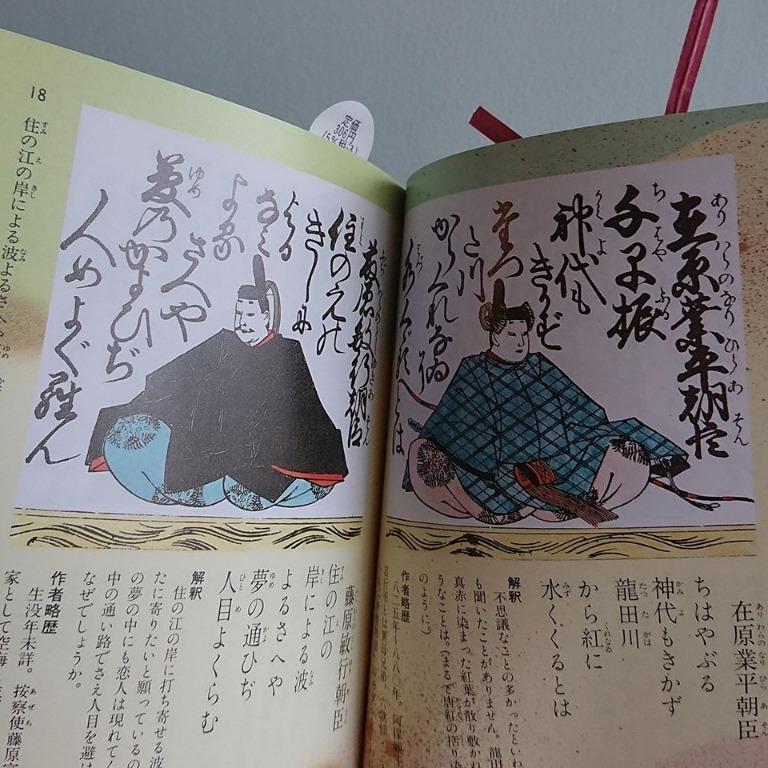 在原業平朝臣
千早振
神代も
きかず
たつ
た川
からくれなゐ
在原業平朝臣
ちはやぶる
神代もきかず
龍田川
から紅に
水くくるとは
解釈
不思議なことの多かったといわ
も聞いたことがありません。龍田
真赤に染まった紅葉が散り敷か
うなことは。(まるで唐紅の括り染
のように)
作者略歴
定価
306円
18
住の江の岸による波よるさへや
藤原敏行朝臣
住のえの
きしに
よる
なミ
よる
さへや
夢乃
かよひぢ
人めよくらん
藤原敏行朝臣
住の江の
岸による波
よるさへや
夢の通ひぢ
人目よくらむ
解釈
住の江の岸に打ち寄せる波
たに寄りたいと願っているの
の夢の中にも恋人は現れてく
中の通い路でさえ人目を避け
なぜでしょうか。
作者略歴
生没年未詳。按察使藤原富
家として空海